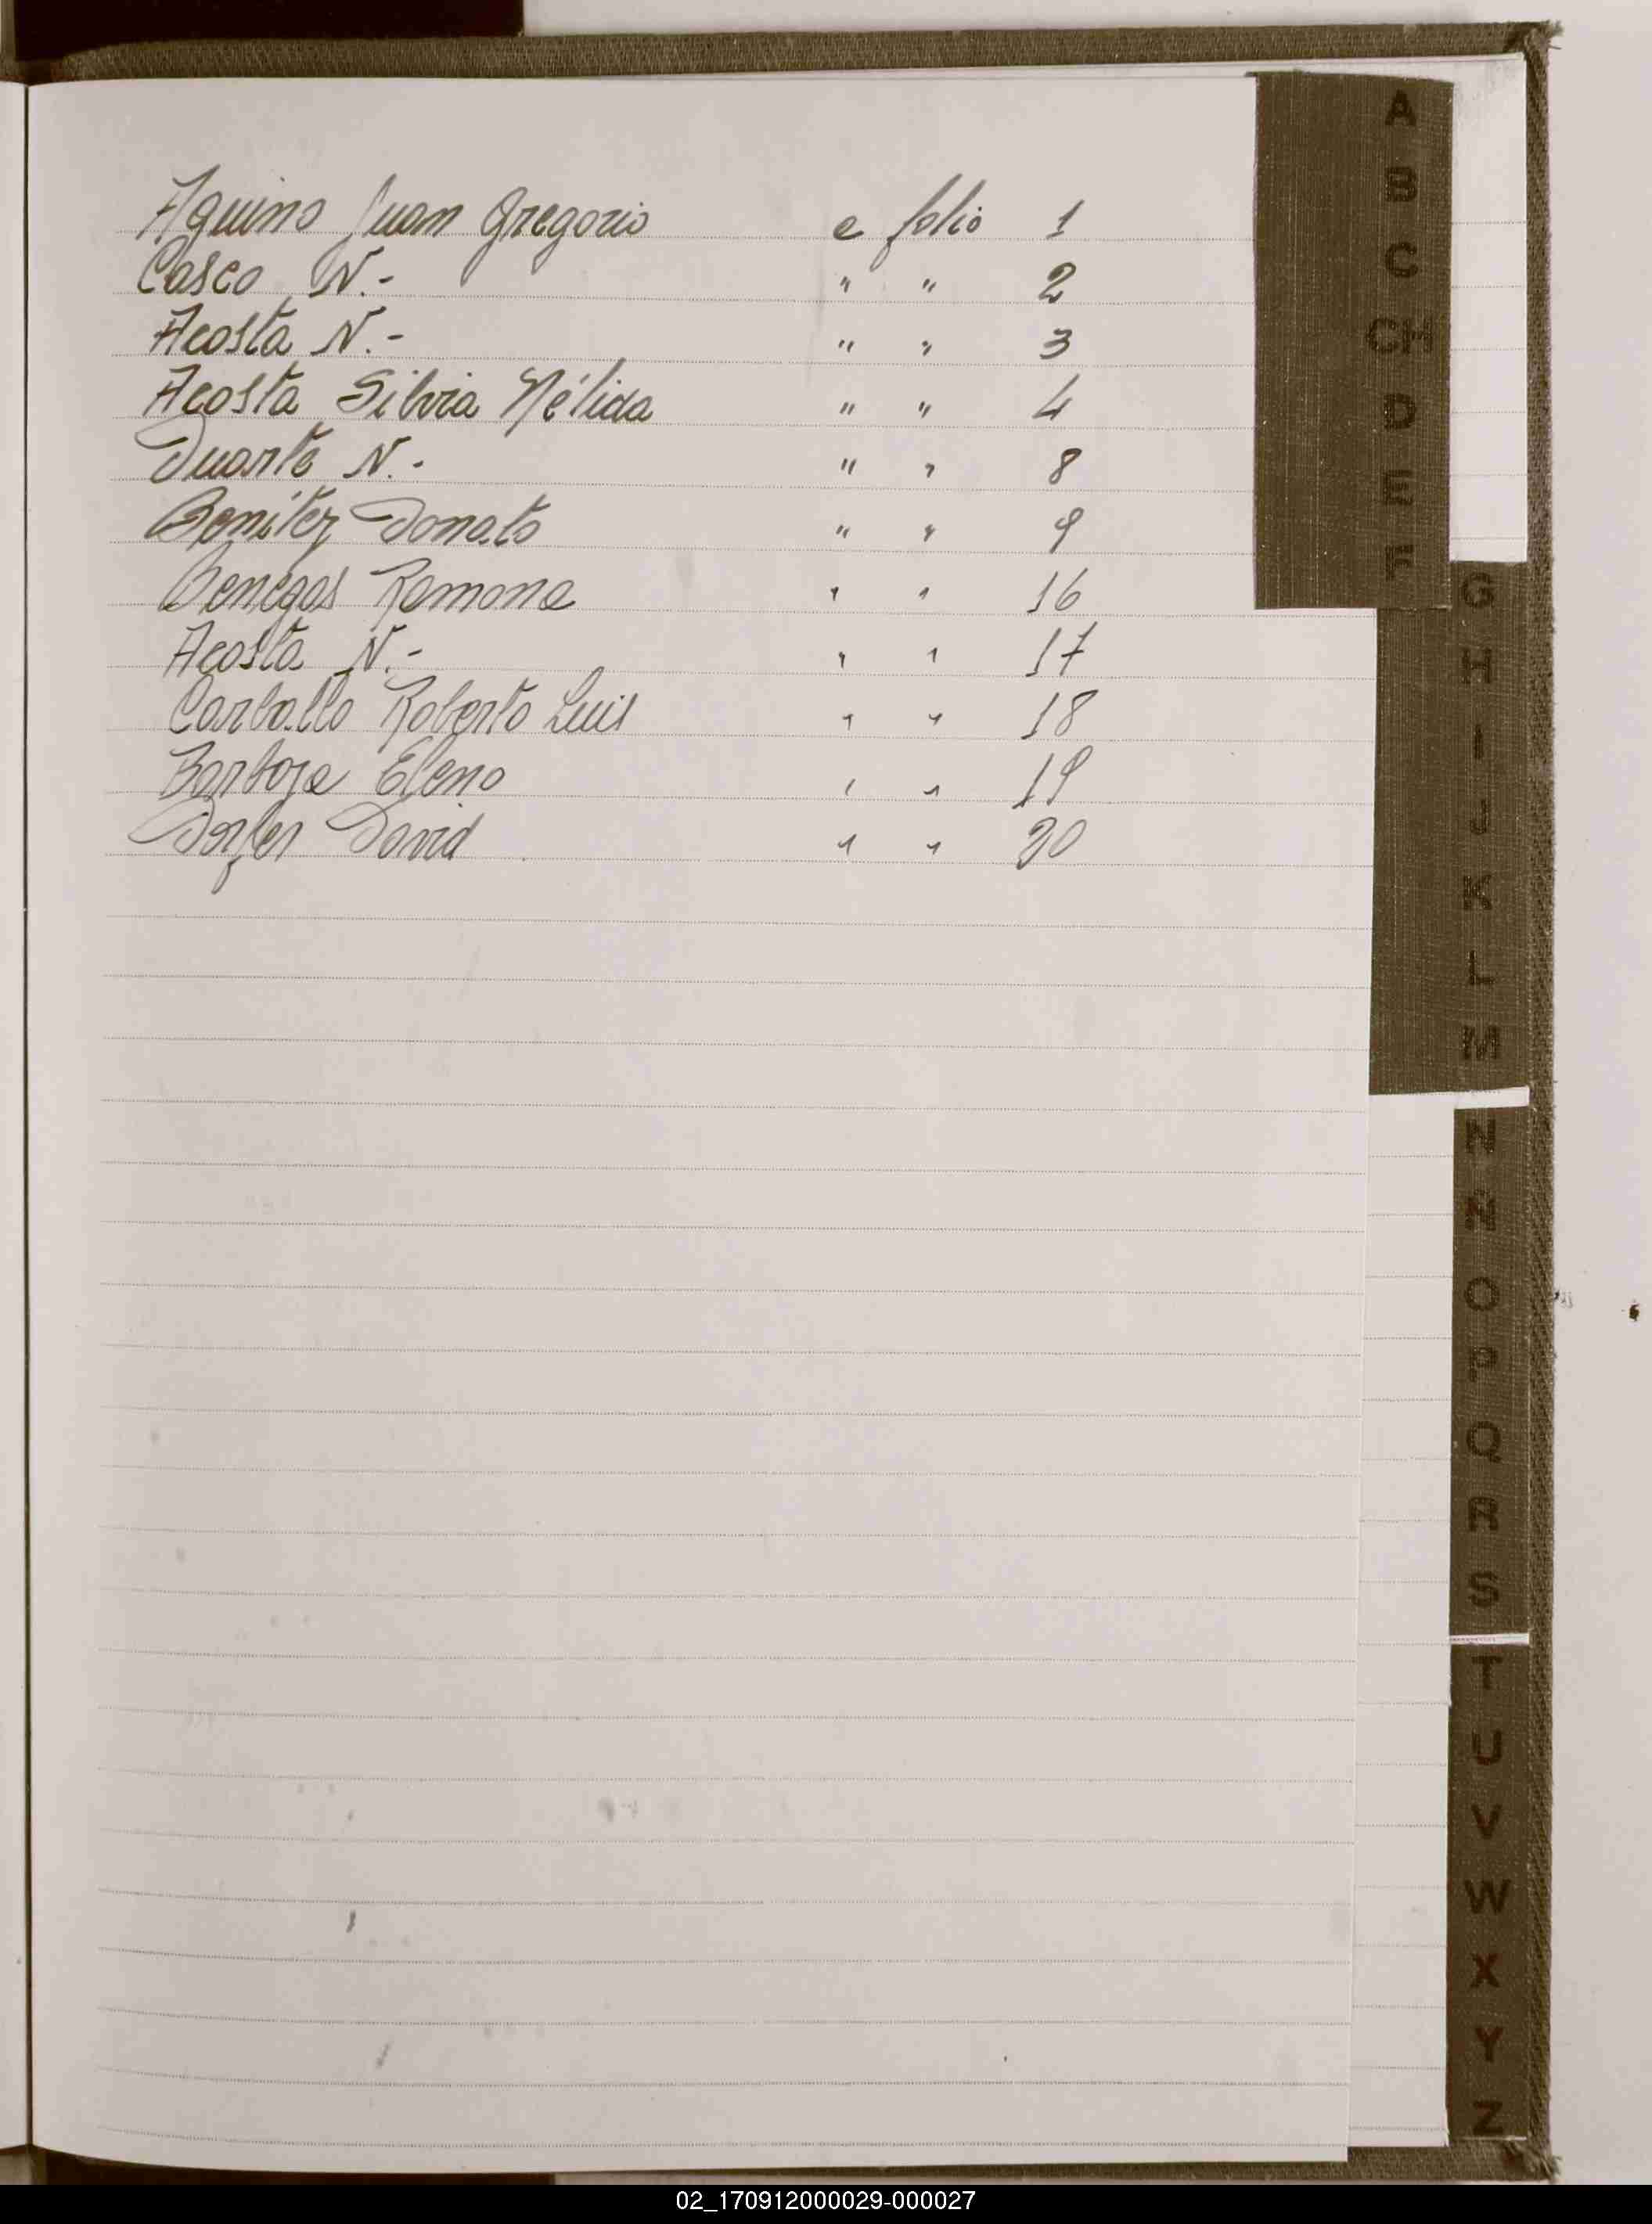 Aquino Juan Gregorio a folio 1
Casco N.- " " 2
Acosta N.- " " 3
Acosta Silvia Nélida " " 4
Duarte N.- " " 8
Benítez Donato " " 9
Benegas Ramona " " 16
Acosta N.- " " 17
Carballo Roberto Luis " " 18
Barboza Elena " " 19
David " " 20
A
B
C
CH
D
E
F
G
H
I
J
K
L
M
N
Ñ
O
P
Q
R
S
T
U
V
W
X
Y
Z
02_170912000029-000027